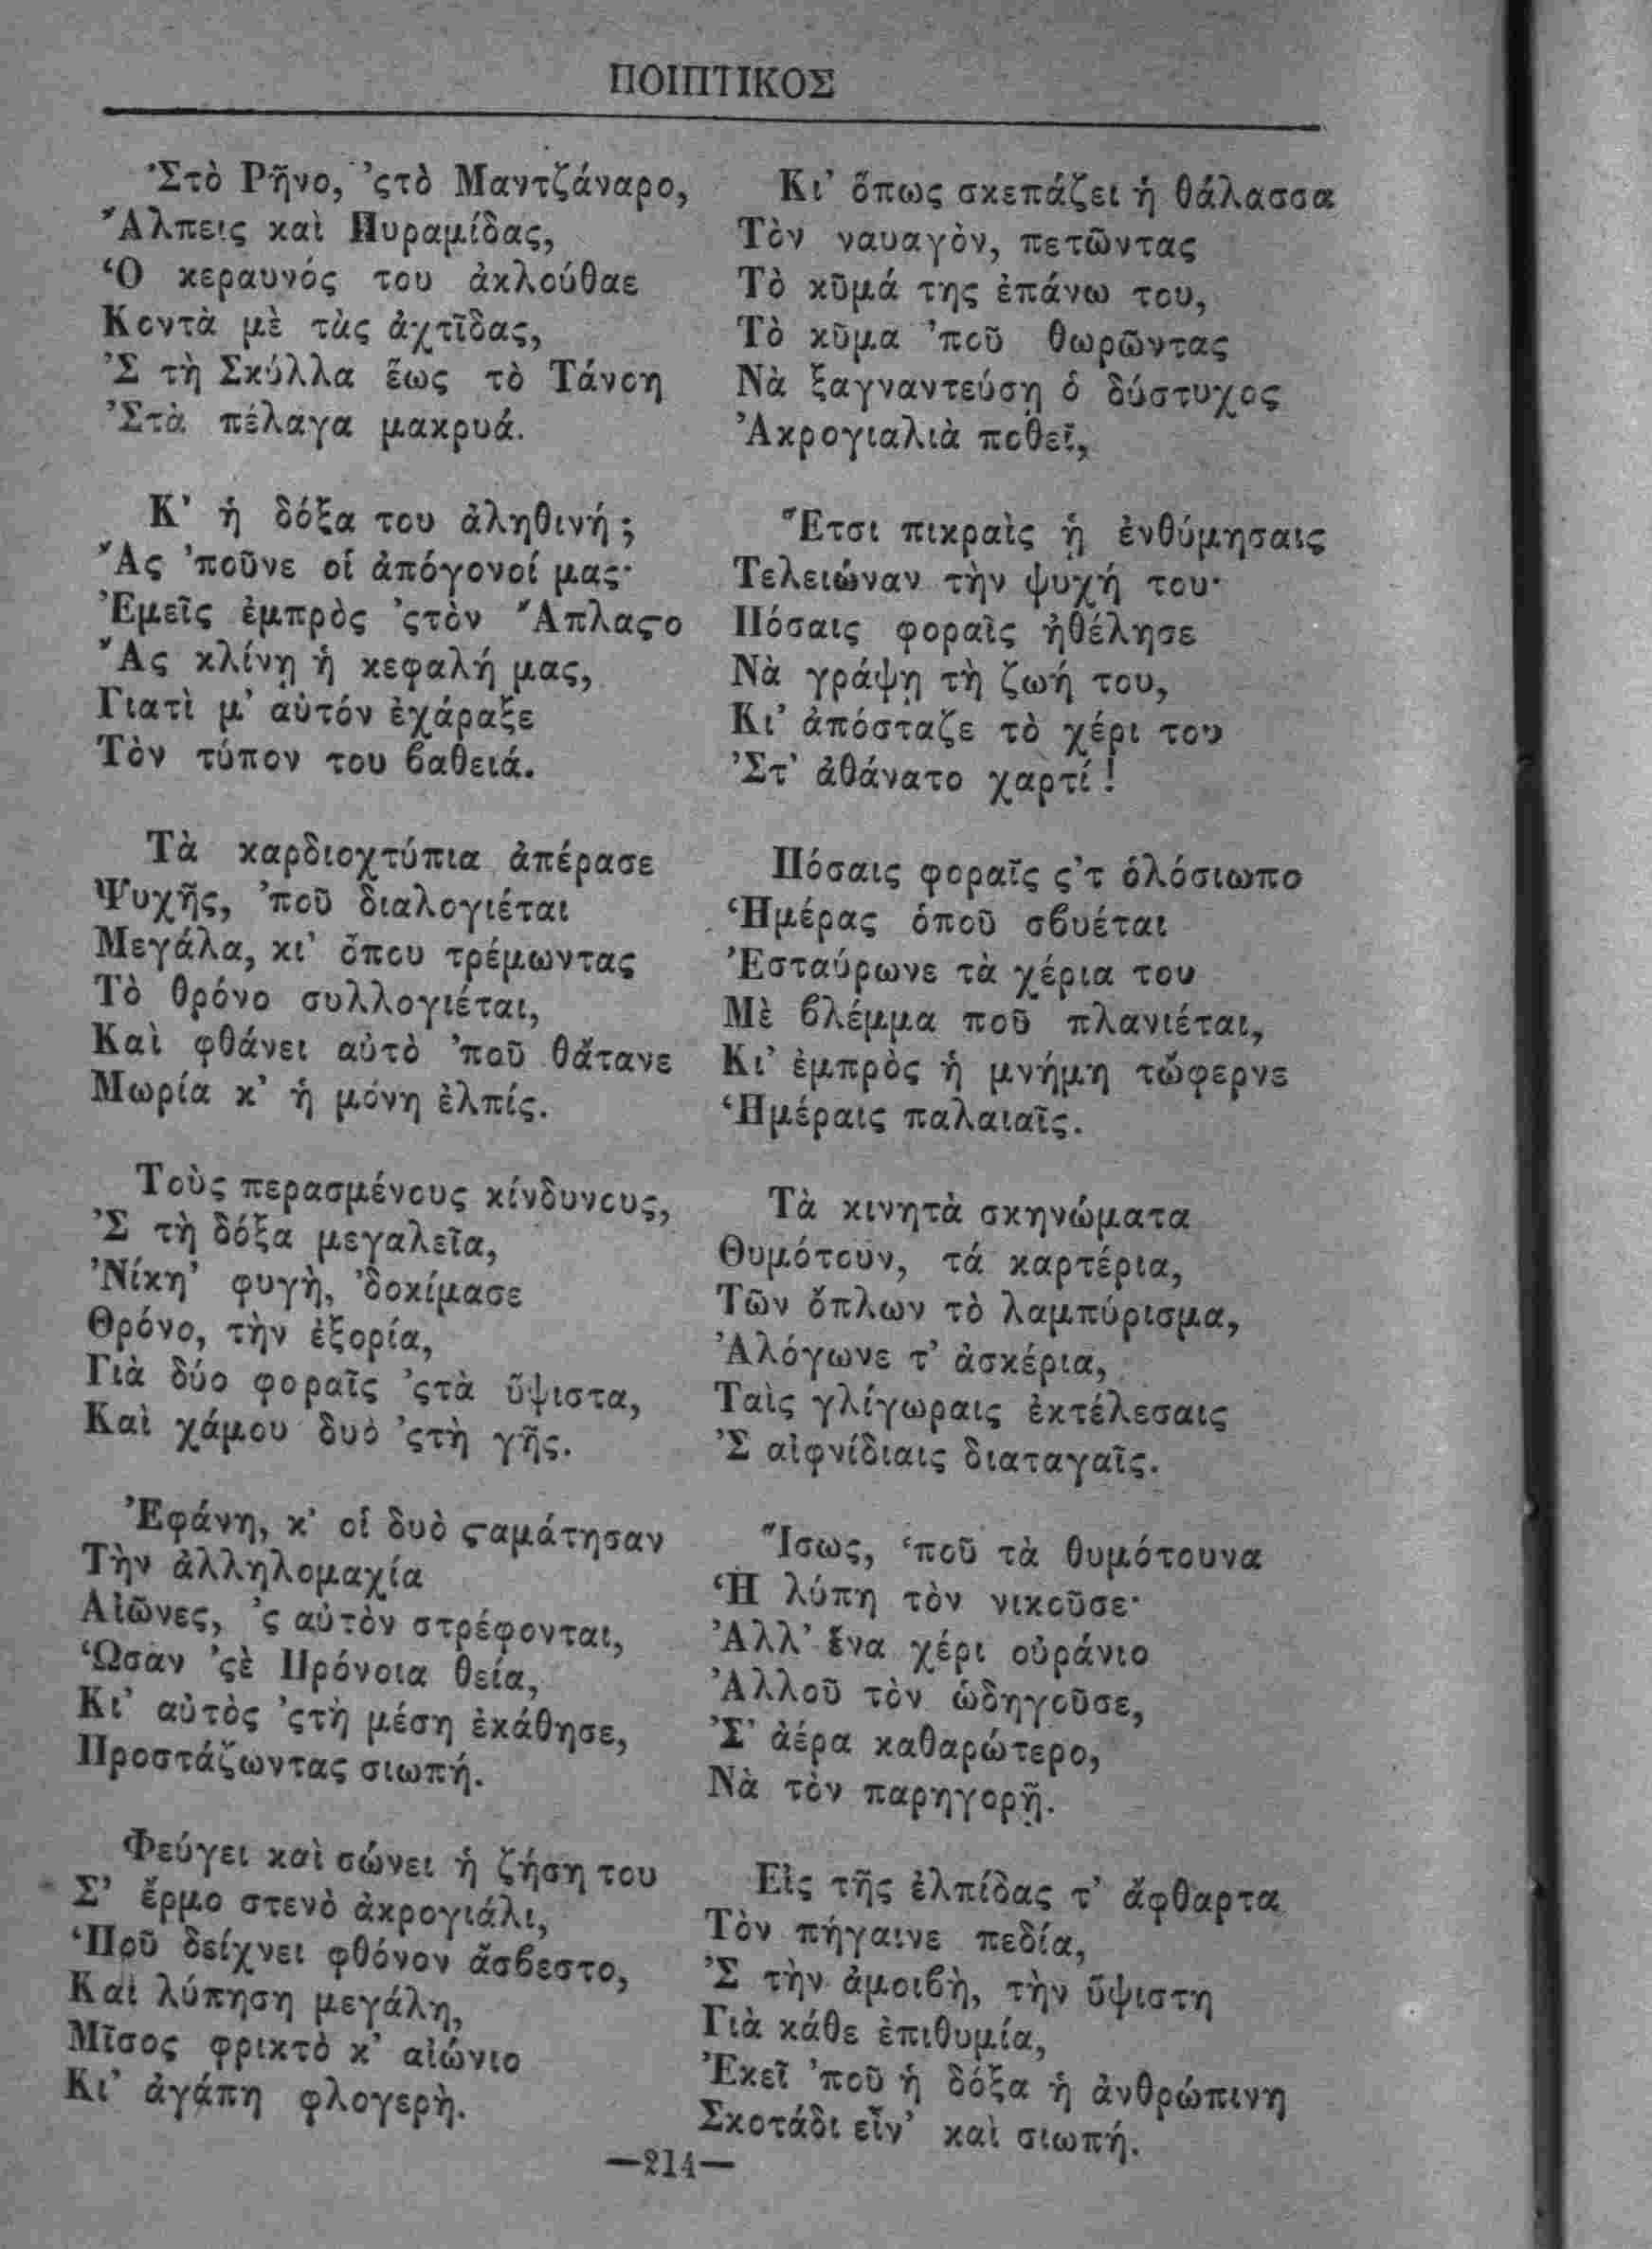 ΠΟΙΠΤΙΚΟΣ
Ὁ Στὸ Ρῆνο, 'ςτὸ Μαντζάναρο,
Ἄλπεις καὶ Πυραμίδας,
Ὁ κεραυνός του ἀκλούθαε
Κοντὰ μὲ τὰς ἀχτῖδας,
'Σ τὴ Σκύλλα ἕως τὸ Τάνοη
'Στὰ πέλαγα μακρυά.
Κ' ἡ δόξα του ἀληθινή;
Ἂς 'ποῦνε οἱ ἀπόγονοί μας·
Ἐμεῖς ἐμπρὸς 'ςτὸν Ἄπλαϛο
Ἂς κλίνῃ ἡ κεφαλή μας,
Γιατὶ μ' αὐτόν ἐχάραξε
Τὸν τύπον του βαθειά.
Τὰ καρδιοχτύπια ἀπέρασε
Ψυχῆς, 'ποῦ διαλογιέται
Μεγάλα, κι' ὅπου τρέμωντας
Τὸ θρόνο συλλογιέται,
Καὶ φθάνει αὐτὸ 'ποῦ θἄτανε
Μωρία κ' ἡ μόνη ἐλπίς.
Τοὺς περασμένους κίνδυνους,
'Σ τὴ δόξα μεγαλεῖα,
'Νίκη' φυγὴ, 'δοκίμασε
Θρόνο, τὴν ἐξορία,
Γιὰ δύο φοραῖς 'ςτὰ ὕψιστα,
Καὶ χάμου δυὸ 'ςτὴ γῆς.
Ἐφάνη, κ' οἱ δυὸ ϛαμάτησαν
Τὴν ἀλληλομαχία
Αἰῶνες, 'ς αὐτὸν στρέφονται,
Ὡσαν 'ςὲ Πρόνοια θεία,
Κι' αὐτὸς 'ςτὴ μέση ἐκάθησε,
Προστάζωντας σιωπή.
Φεύγει καὶ σώνει ἡ ζήση του
Σ' ἔρμο στενὸ ἀκρογιάλι,
Ποῦ δείχνει φθόνον ἄσβεστο,
Καὶ λύπηση μεγάλη,
Μῖσος φρικτὸ κ' αἰώνιο
Κι' ἀγάπη φλογερὴ.
Κι' ὅπως σκεπάζει ἡ θάλασσα
Τὸν ναυαγὸν, πετῶντας
Τὸ κῦμά της ἐπάνω του,
Τὸ κῦμα 'ποῦ θωρῶντας
Νὰ ξαγναντεύσῃ ὁ δύστυχος
Ἀκρογιαλιὰ ποθεῖ,
Ἔτσι πικραὶς ᾑ ἐνθύμησαις
Τελειώναν τὴν ψυχή του·
Πόσαις φοραῖς ἠθέλησε
Νὰ γράψῃ τὴ ζωή του,
Κι' ἀπόσταζε τὸ χέρι του
'Στ' ἀθάνατο χαρτί!
Πόσαις φοραῖς ς'τ ὁλόσιωπο
Ἡμέρας ὁποῦ σβυέται
Ἐσταύρωνε τὰ χέρια του
Μὲ βλέμμα ποῦ πλανιέται,
Κι' ἐμπρὸς ἡ μνήμη τὤφερνε
Ἡμέραις παλαιαῖς.
Τὰ κινητὰ σκηνώματα
Θυμότουν, τά καρτέρια,
Τῶν ὅπλων τὸ λαμπύρισμα,
Ἀλόγωνε τ' ἀσκέρια,
Ταὶς γλίγωραις ἐκτέλεσαις
'Σ αἰφνίδιαις διαταγαῖς.
Ἴσως, 'ποῦ τὰ θυμότουνα
Ἡ λύπη τὸν νικοῦσε·
Ἀλλ' ἕνα χέρι οὐράνιο
Ἀλλοῦ τὸν ὡδηγοῦσε,
'Σ' ἀέρα καθαρώτερο,
Νὰ τὸν παρηγορῇ.
Εἰς τῆς ἐλπίδας τ' ἄφθαρτα
Τὸν πήγαινε πεδία,
'Σ τὴν ἀμοιβὴ, τὴν ὕψιστη
Γιὰ κάθε ἐπιθυμία,
Ἐκεῖ 'ποῦ ἡ δόξα ἡ ἀνθρώπινη
Σκοτάδι εἶν' καὶ σιωπή.
—214—